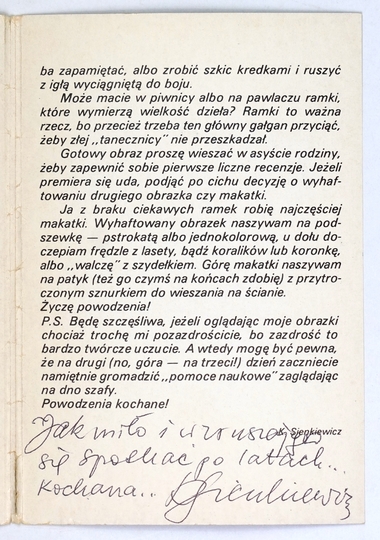 ba zapamiętać, albo zrobić szkic kredkami i ruszyć
z igłą wyciągniętą do boju.
Może macie w piwnicy albo na pawlaczu ramki,
które wymierzą wielkość dzieła? Ramki to ważna
rzecz, bo przecież trzeba ten główny gałgan przyciąć,
żeby złej „tanecznicy” nie przeszkadzał.
Gotowy obraz proszę wieszać w asyście rodziny,
żeby zapewnić sobie pierwsze liczne recenzje. Jeżeli
premiera się uda, podjąć po cichu decyzję o wyhaf-
towaniu drugiego obrazka czy makatki.
Ja z braku ciekawych ramek robię najczęściej
makatki. Wyhaftowany obrazek naszywam na pod-
szewkę — pstrokatą albo jednokolorową, u dołu do-
czepiam frędzle z lasety, bądź koralików lub koronkę,
albo „walczę” z szydełkiem. Górę makatki naszywam
na patyk (też go czymś na końcach zdobię) z przytro-
czonym sznurkiem do wieszania na ścianie.
Życzę powodzenia!
P.S. Będę szczęśliwa, jeżeli oglądając moje obrazki
chociaż trochę mi pozazdrościcie, bo zazdrość to
bardzo twórcze uczucie. A wtedy mogę być pewna,
że na drugi (no, góra — na trzeci!) dzień zaczniecie
namiętnie gromadzić „pomoce naukowe” zaglądając
na dno szafy.
Powodzenia kochane!
Sienkiewicz
Jak miło i wzruszająco
się spotkać po latach...
Kochana.. Sienkiewicz